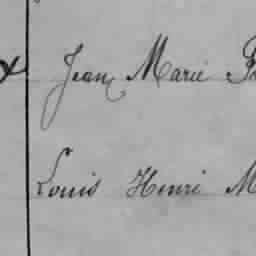 Jean Marie
Louis Henri M